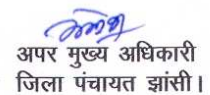 अपर मुख्य अधिकारी
जिला पंचायत झांसी।